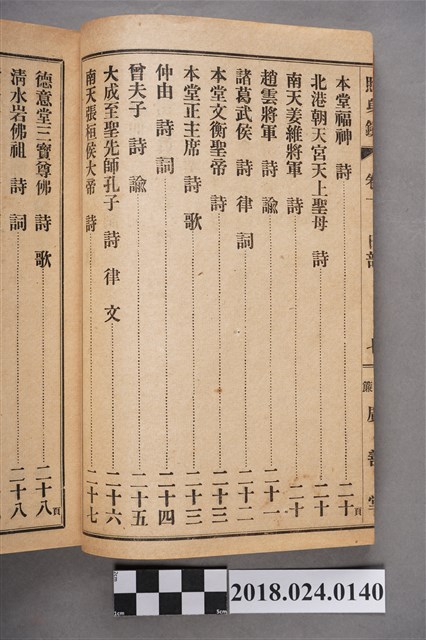 本堂福神 詩 二十頁
北港朝天宮天上聖母 詩 二十
南天姜維將軍 詩 二十
趙雲將軍 詩 諭 二十一
諸葛武侯 詩 律 詞 二十二
本堂文衡聖帝 詩 二十三
本堂正主席 詩 歌 二十三
仲由 詩 詞 二十四
曾夫子 詩 諭 二十五
大成至聖先師孔子 詩 律 文 二十六
南天張桓侯大帝 詩 二十七
德意堂三寶尊佛 詩 歌 二十八頁
清水岩佛祖 詩 詞 二十八
2018.024.0140
1cm
5cm